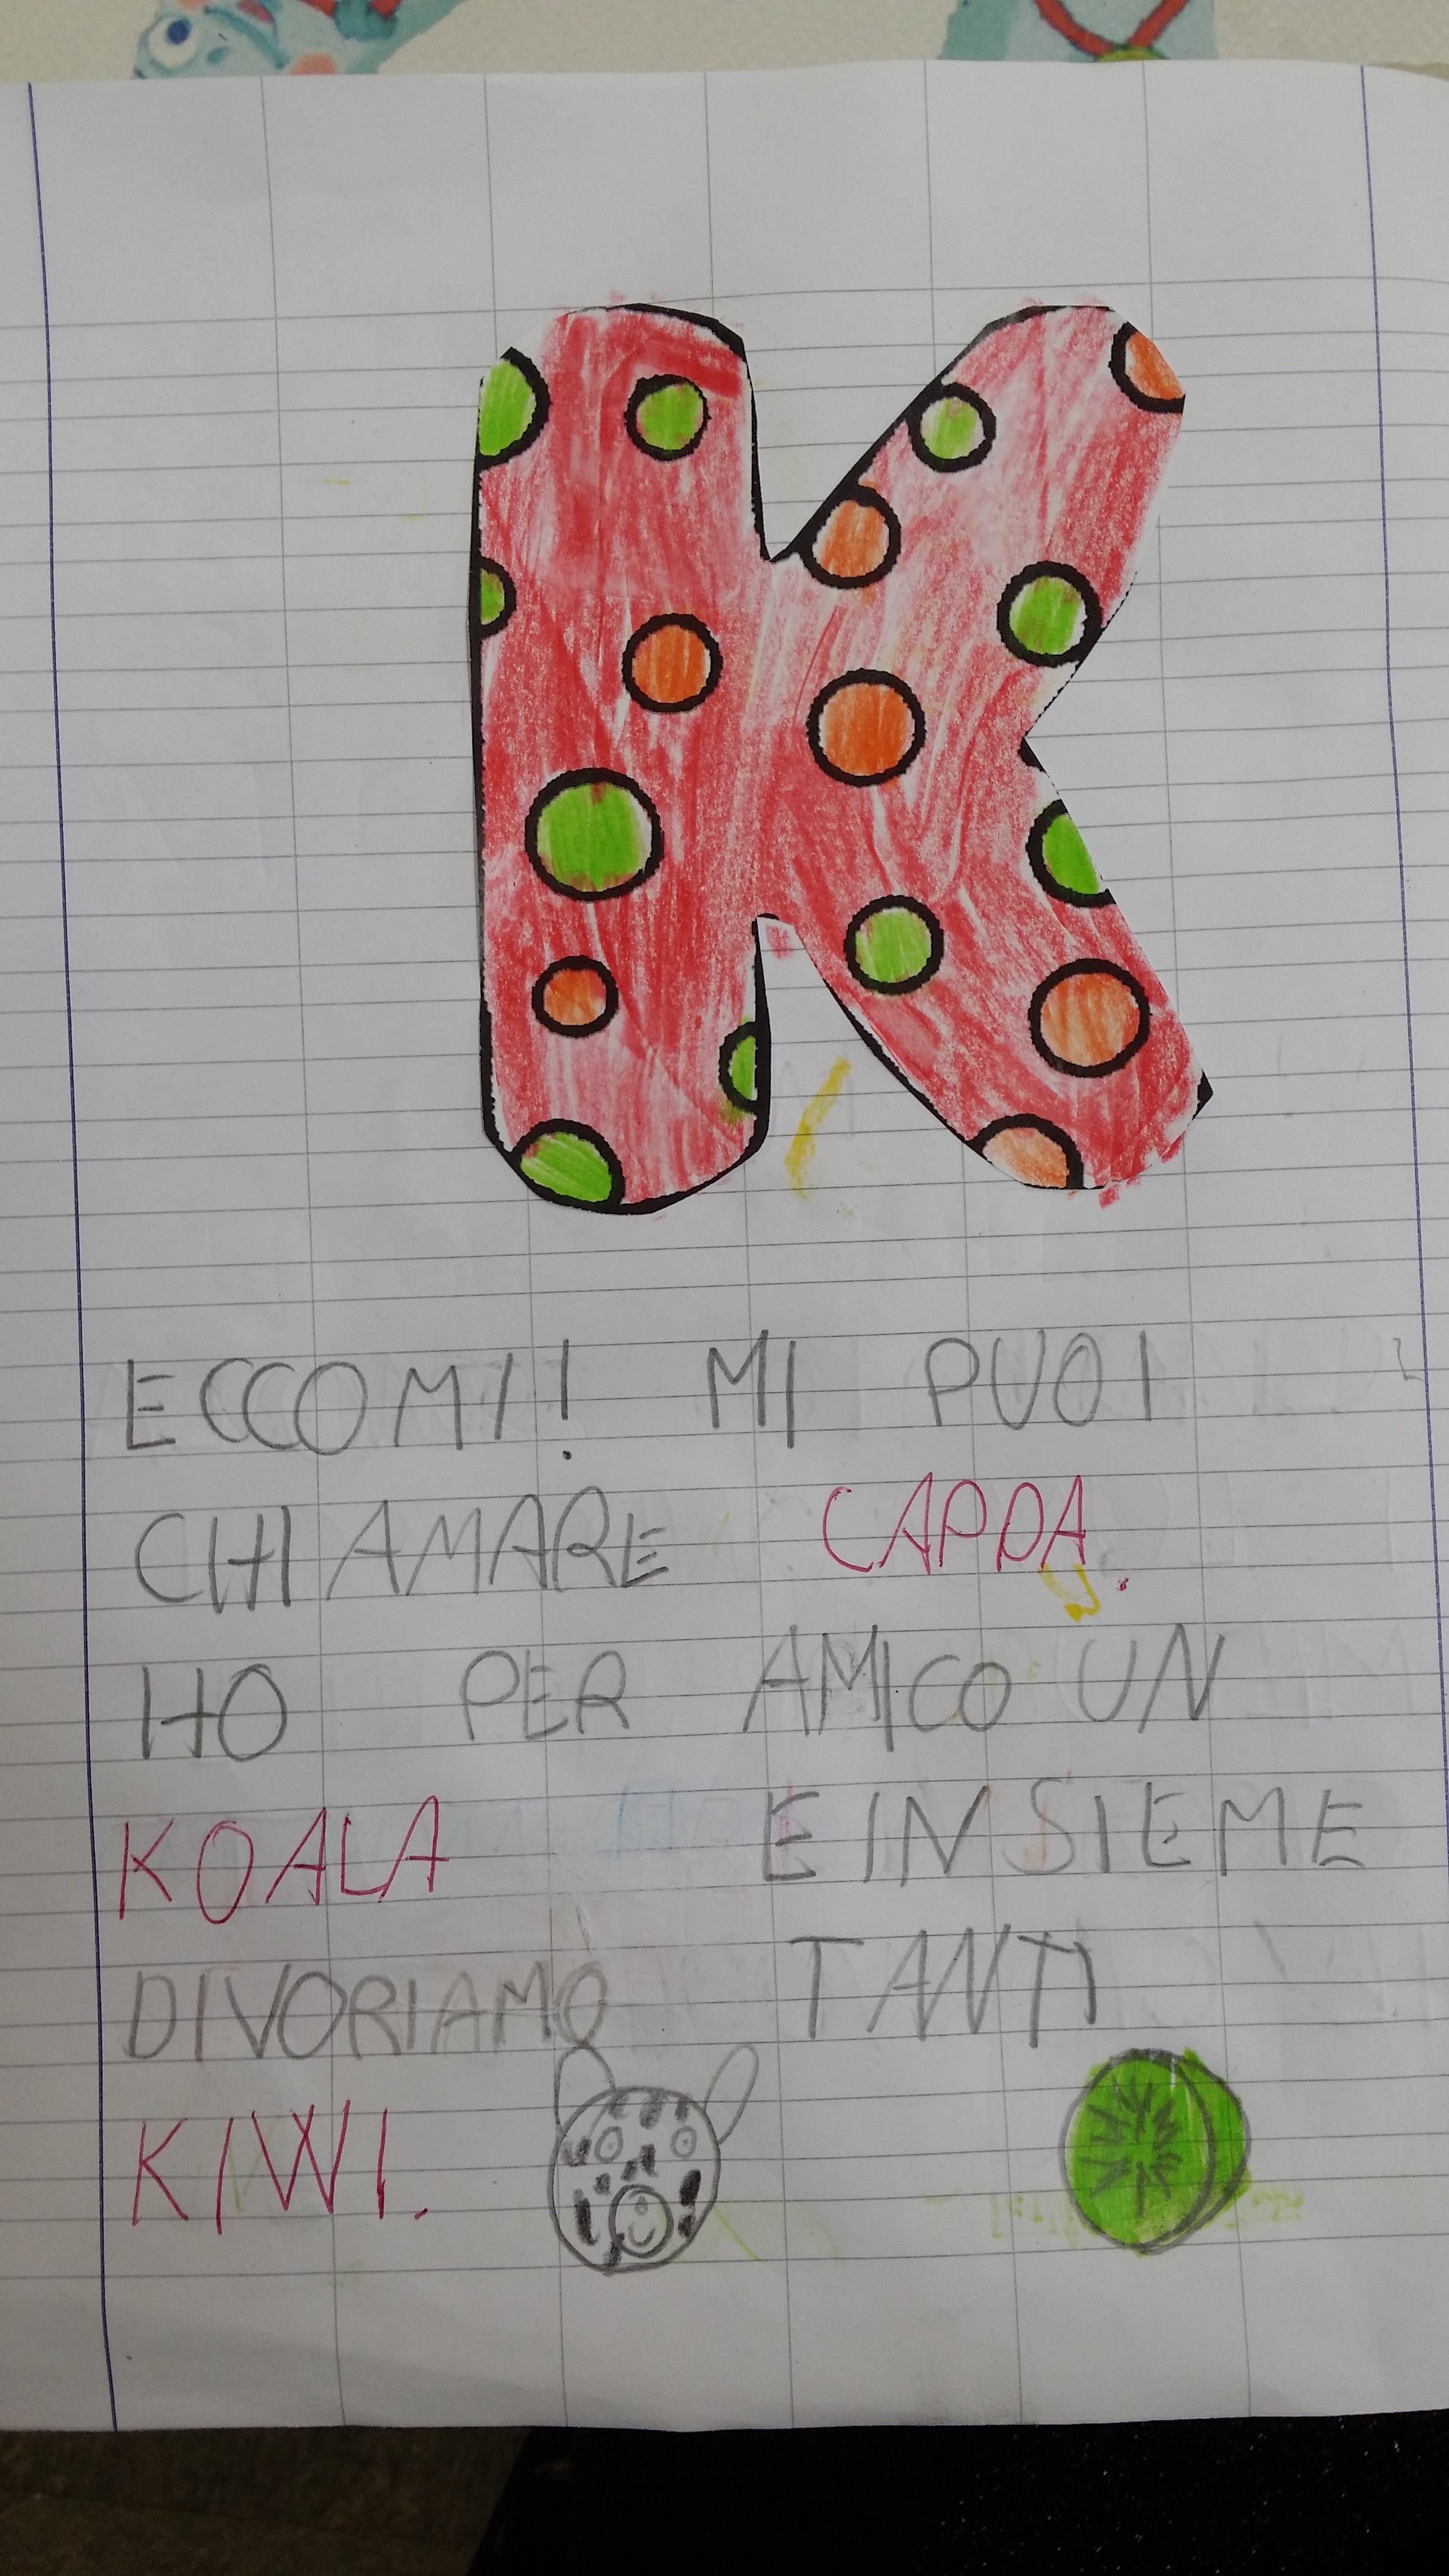 K
ECCOMI! MI PUOI
CHIAMARE CAPPA.
HO PER AMICO UN
KOALA E INSIEME
DIVORIAMO TANTI
KIWI.